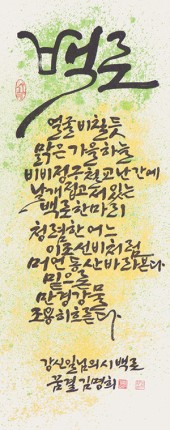 백로
얼굴 비칠듯
맑은 가을하늘
비비정 우척고 난간에
날개접고 서 있는
백로 한마리
청렴한 어느
이조선비처럼
먼 동산 바라본다.
믿으른
만경강물
조용히 흐른다.
강신일님의 시 백로
꿈결 김명희